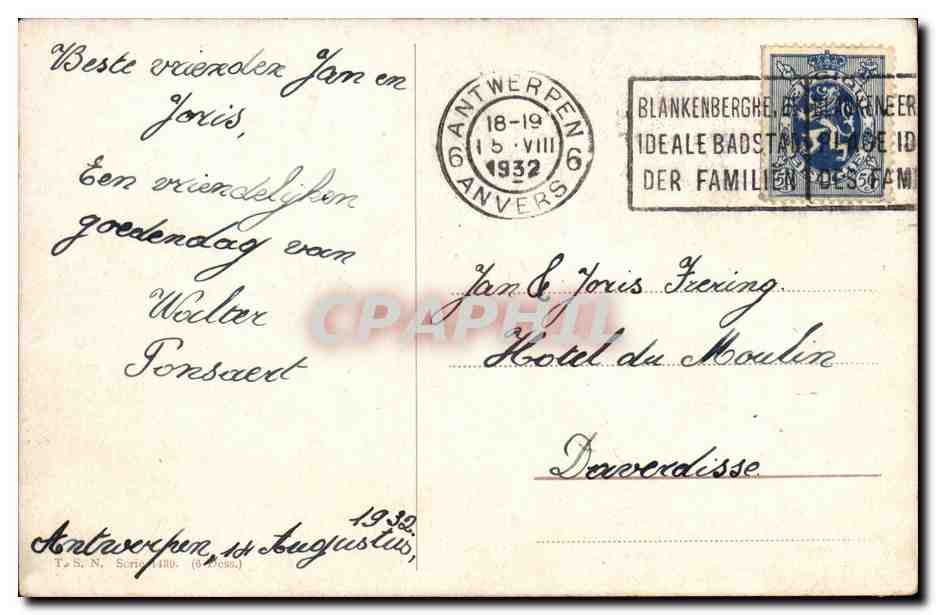 Beste vrienden Jan en
Joris,
Een vriendelijken
goedendag van
Walter
Ponsaert
Antwerpen, 14 Augustus,
1932.
T. S. N. Serie 1439. (6 Dess.)
ANTWERPEN
18-19
15 VIII
1932
6 6
ANVERS
BLANKENBERGHE
IDEALE BADSTAD PLAGE ID
DER FAMILIEN DES FAM
50 50
Jan & Joris Frering
Hotel du Moulin
Daverdisse
CPAPHIL